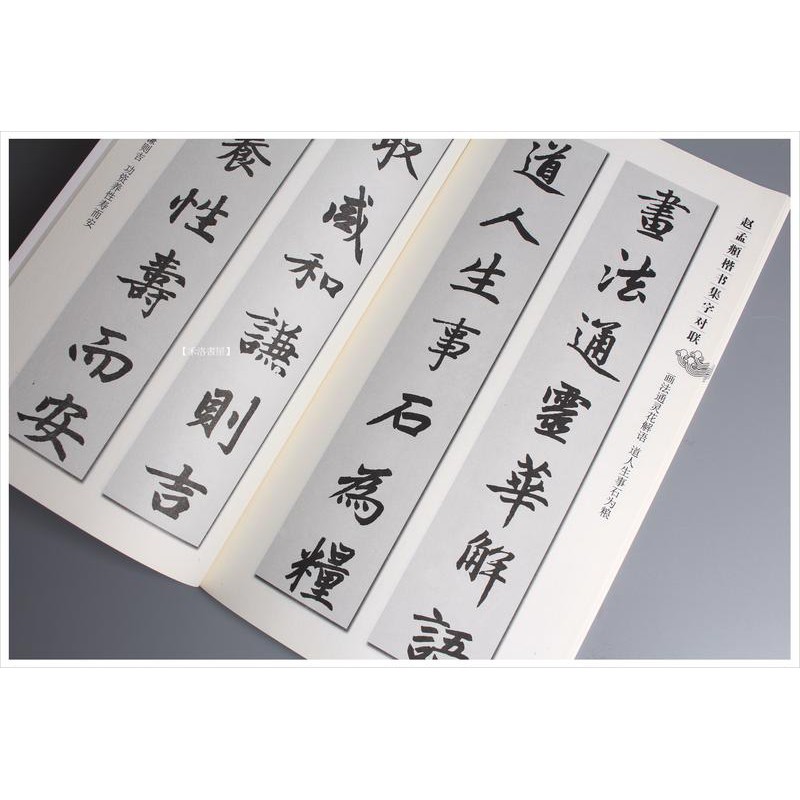 赵孟頫楷书集字对联
画法通灵花解语 道人生事石为粮
畫法通靈華解語
道人生事石為糧
取咸和謙則吉
養性壽而安
谦则吉 功资养性寿而安
【禾洛書屋】